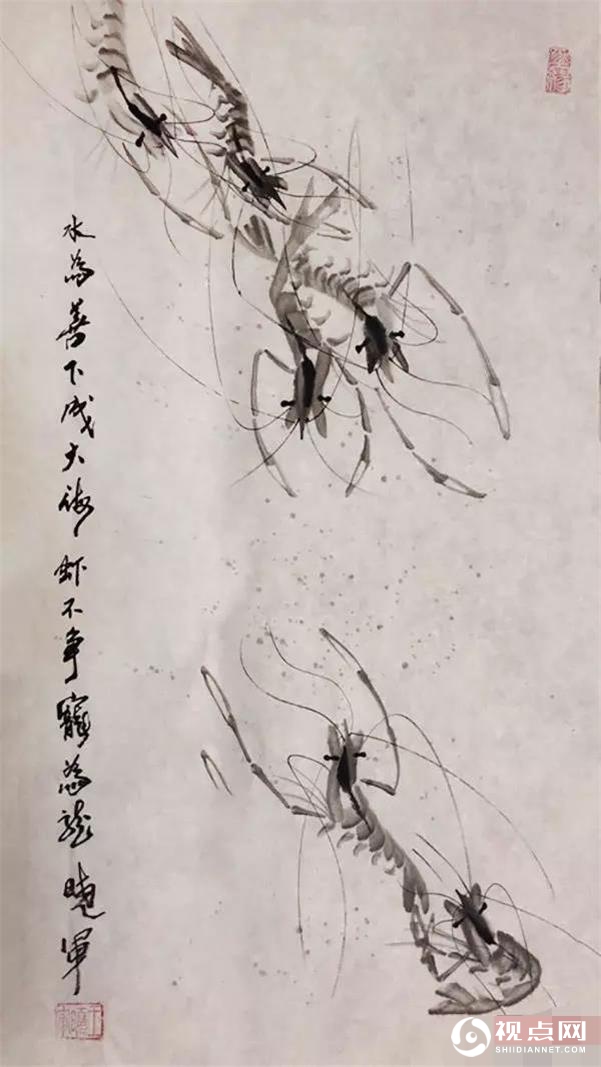 水為善下成大海虾不争寵為龍 曉軍
视点网
SHIIDIANNET.COM